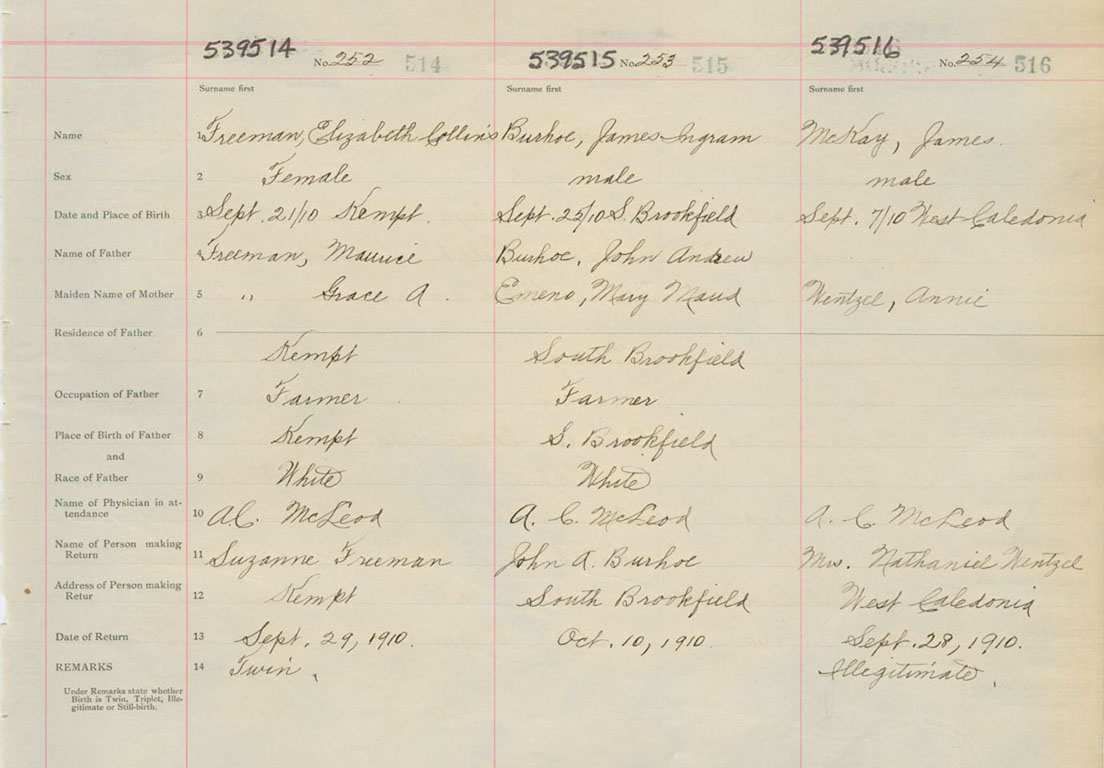 539514 No. 252 514 539515 No. 253 515 539516 No. 254 516
Surname first Surname first Surname first
Name 1 Freeman, Elizabeth Collins Burhoe, James Ingram McKay, James.
Sex 2 Female male male
Date and Place of Birth 3 Sept. 21/10 Kempt. Sept. 25/10 S. Brookfield Sept. 7/10 West Caledonia
Name of Father 4 Freeman, Maurice Burhoe, John Andrew
Maiden Name of Mother 5 " Grace A. Emeno, Mary Maud Wentzel, Annie
Residence of Father 6
Kempt South Brookfield
Occupation of Father 7 Farmer Farmer
Place of Birth of Father 8 Kempt S. Brookfield
and
Race of Father 9 White White
Name of Physician in at-
tendance 10 A.C. McLeod A. C. McLeod A. C. McLeod
Name of Person making
Return 11 Suzanne Freeman John A. Burhoe Mrs. Nathaniel Wentzel
Address of Person making
Retur 12 Kempt South Brookfield West Caledonia
Date of Return 13 Sept. 29, 1910. Oct. 10, 1910 Sept. 28, 1910.
REMARKS 14 Twin. Illegitimate.
Under Remarks state whether
Birth is Twin, Triplet, Ille-
gitimate or Still-birth.